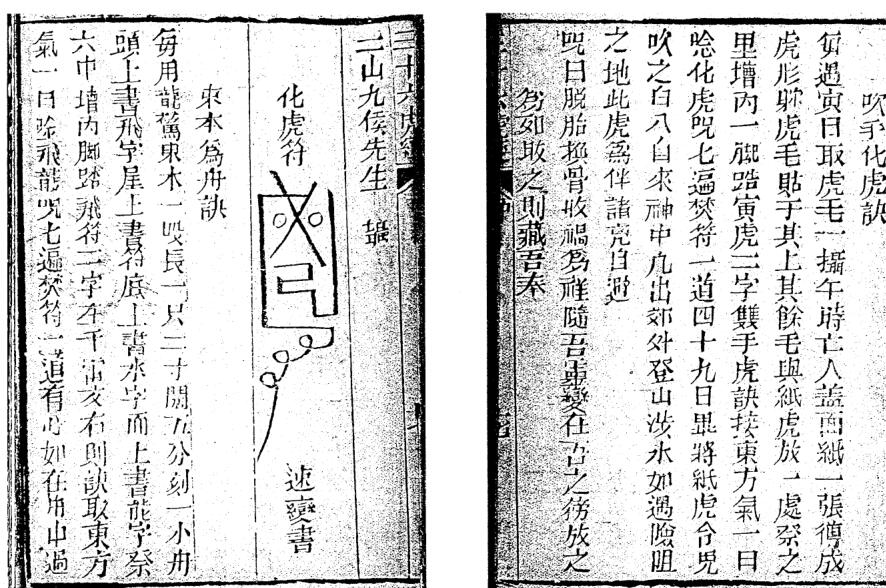 吹毛化虎訣
每遇寅日取虎毛一撮午時亡人蓋面紙一張
虎形將虎毛貼于其上其餘毛與紙虎放一處祭之
里壇內一脚踏寅虎二字雙手虎訣接東方氣一口
唸化虎咒七遍焚符一道四十九日畢將紙虎令咒
吹之自入自來神中凡出郊外登山涉水如遇險阻
之地此虎為伴諸兇自避
咒曰脫胎換骨收禍為祥隨吾變在吾之傍放之
為如收之則藏吾奉
三十六虎
二山九侯先生
化虎符
速變書
來木為舟訣
每用龍駕來木一段長一尺二寸闊五分刻一小舟
頭上書飛字尾上書符底上書水字面上書龍字祭
六中壇內脚踏飛符二字左手雷文右訣取東方
氣一口唸飛龍咒七遍焚符一道有心如在舟中過